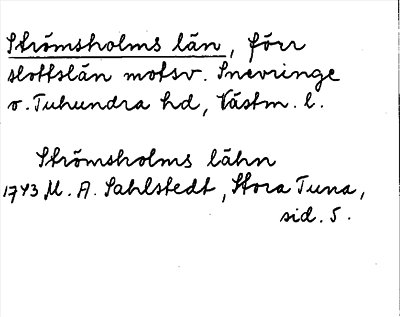 Strömsholms län, förr
slottslän motsv. Snevringe
o. Tuhundra hd, Västm. l.
Strömsholms lähn
1743 M. A. Sahlstedt, Stora Tuna,
sid. 5.